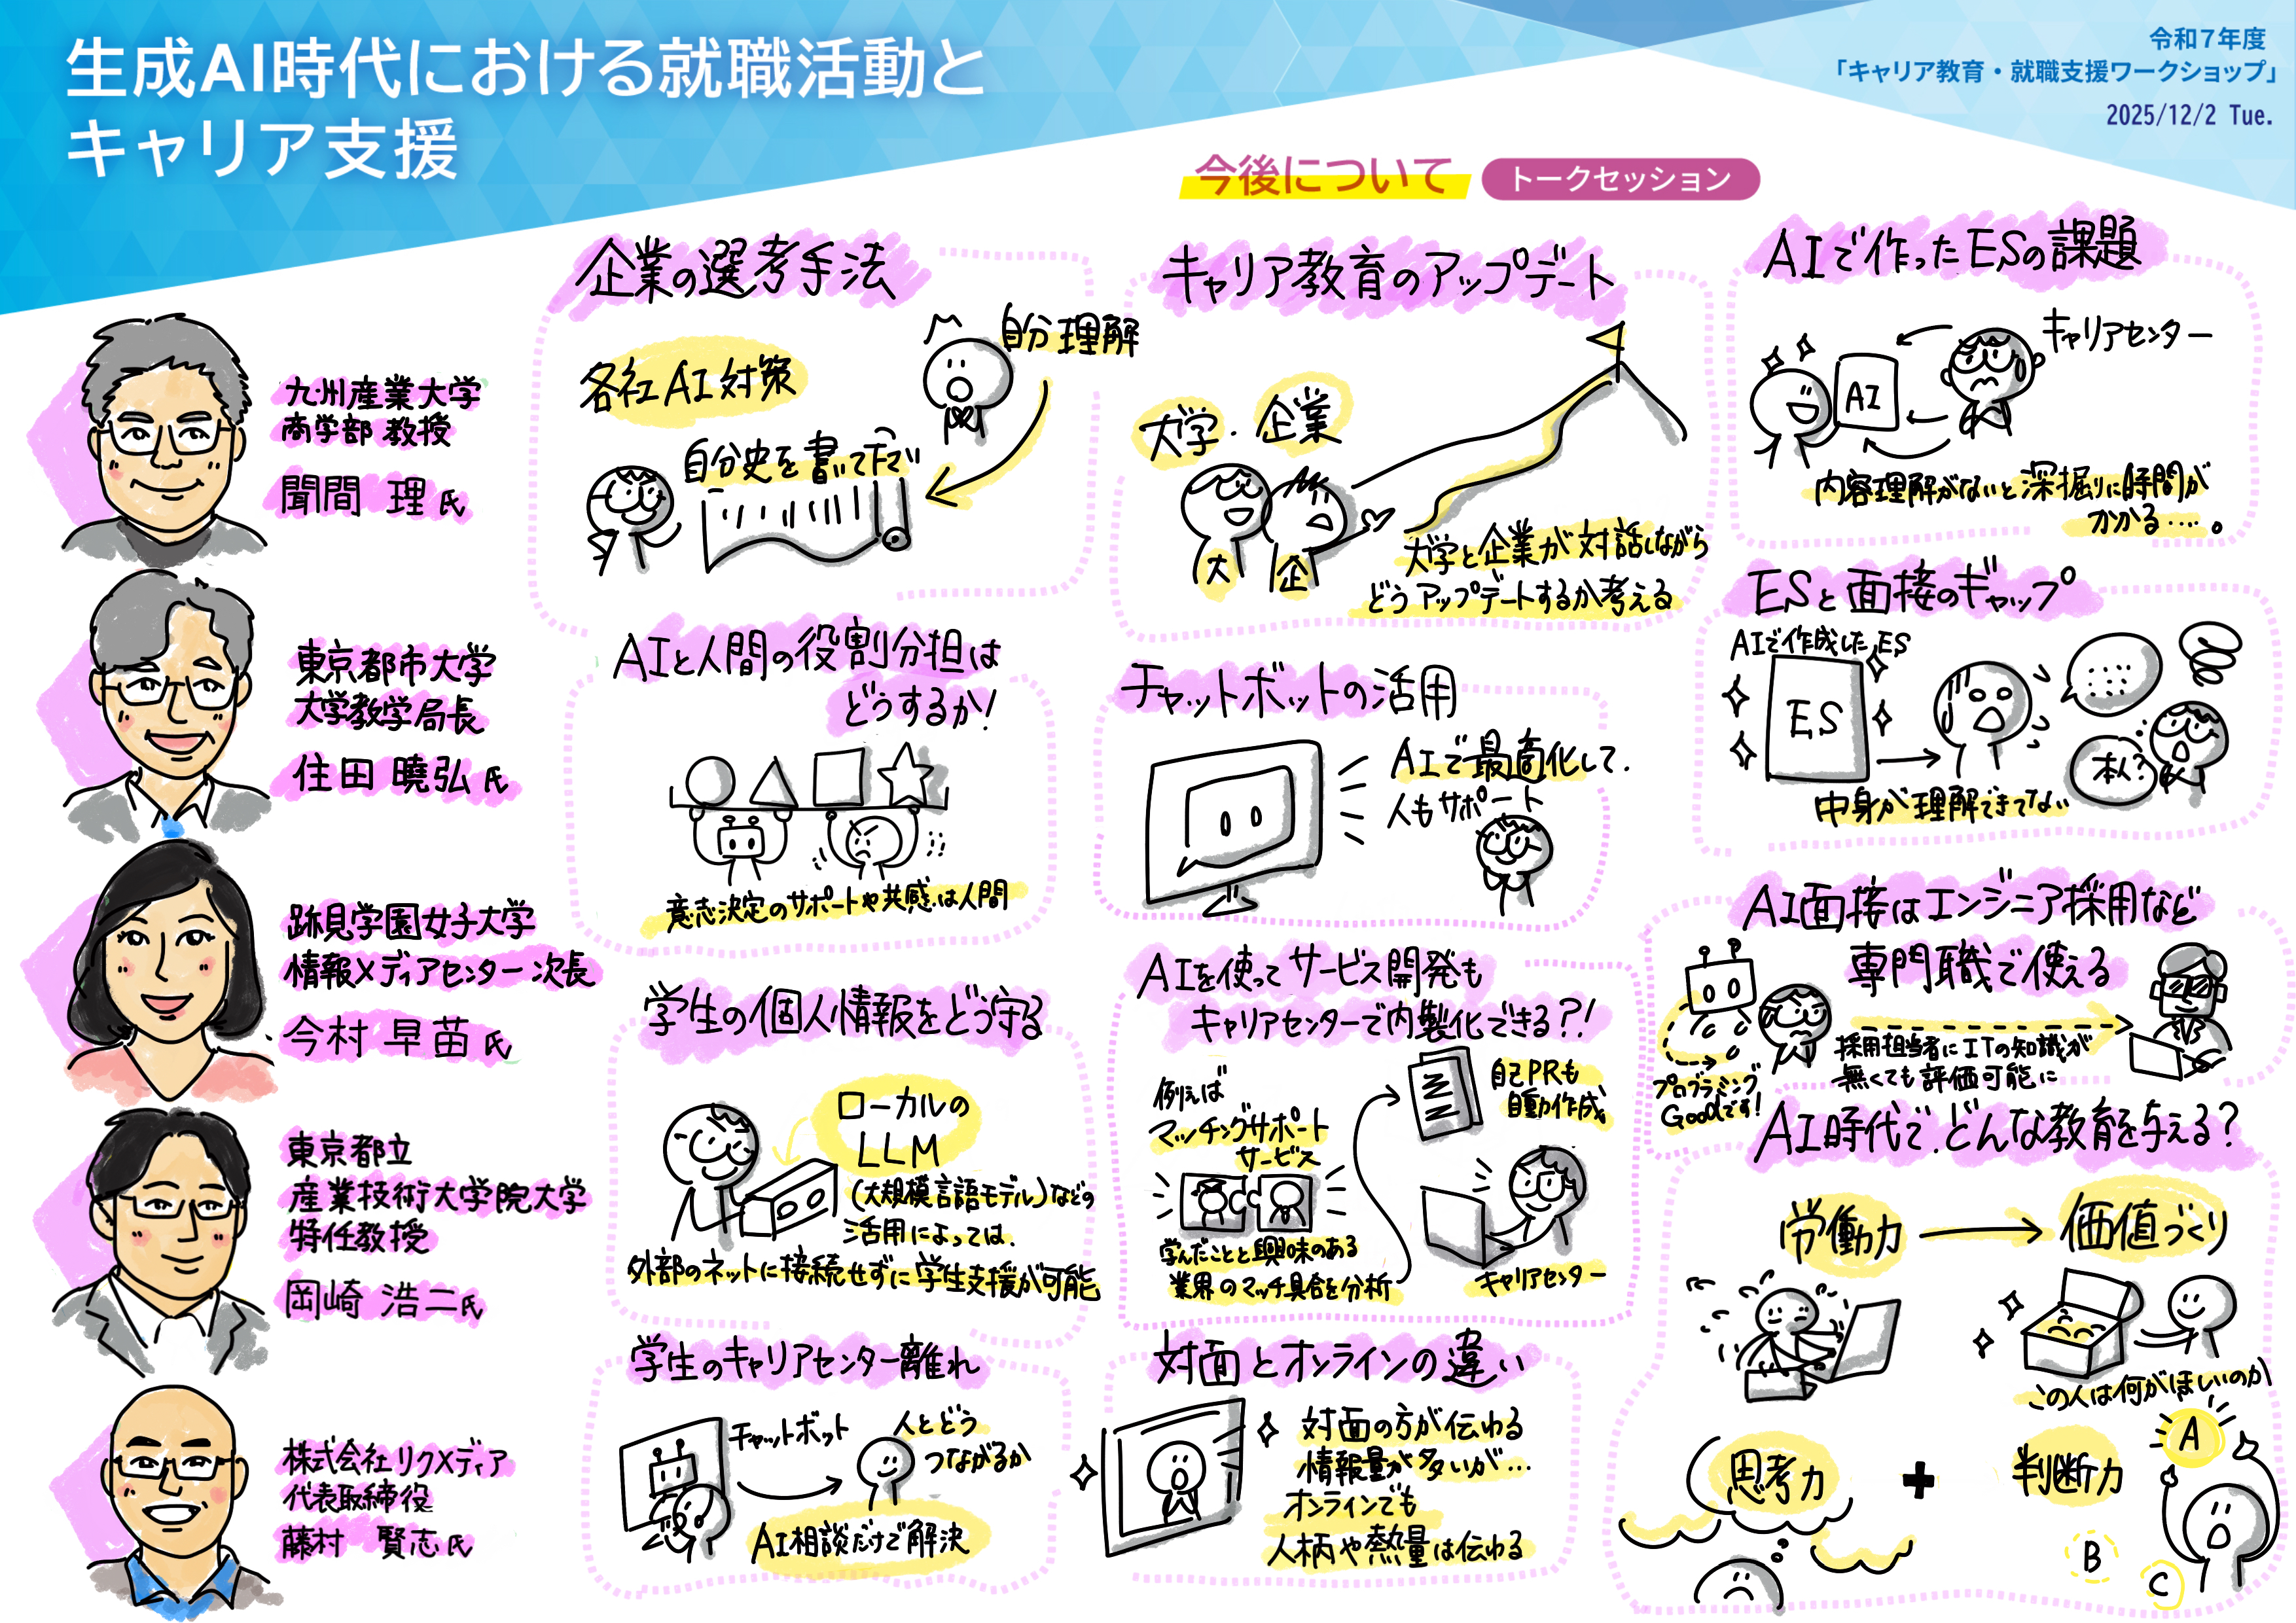 生成AI時代における就職活動と
キャリア支援
令和7年度
「キャリア教育・就職支援ワークショップ」
2025/12/2 Tue.
今後について
トークセッション
九州産業大学
商学部 教授
聞間 理 氏
東京都市大学
大学教学局長
住田 曉弘 氏
跡見学園女子大学
情報メディアセンター次長
今村 早苗 氏
東京都立
産業技術大学院大学
特任教授
岡崎 浩二氏
株式会社リクメディア
代表取締役
藤村 賢志氏
企業の選考手法
各社AI対策
自分理解
自分史を書いて下さい
AIと人間の役割分担は
どうするか!
意志決定のサポートや共感は人間
学生の個人情報をどう守る
ローカルの
LLM
(大規模言語モデル)などの
活用によっては、
外部のネットに接続せずに学生支援が可能
学生のキャリアセンター離れ
チャットボット
人とどう
つながるか
AI相談だけで解決
キャリア教育のアップデート
大学・企業
大
企
大学と企業が対話しながら
どうアップデートするか考える
チャットボットの活用
AIで最適化して、
人もサポート
AIを使ってサービス開発も
キャリアセンターで内製化できる?!
例えば
マッチングサポート
サービス
学んだことと興味のある
業界のマッチ具合を分析
自己PRも
自動作成
キャリアセンター
対面とオンラインの違い
対面の方が伝わる
情報量が多いが…
オンラインでも
人柄や熱量は伝わる
AIで作ったESの課題
AI
キャリアセンター
内容理解がないと深掘りに時間が
かかる….。
ESと面接のギャップ
AIで作成したES
ES
本人?
中身が理解できてない
AI面接はエンジニア採用など
専門職で使える
プログラミング
Goodです!
採用担当者にITの知識が
無くても評価可能に
AI時代で、どんな教育を与える?
労働力
価値づくり
この人は何がほしいのか
思考力
+
判断力
A
B
C